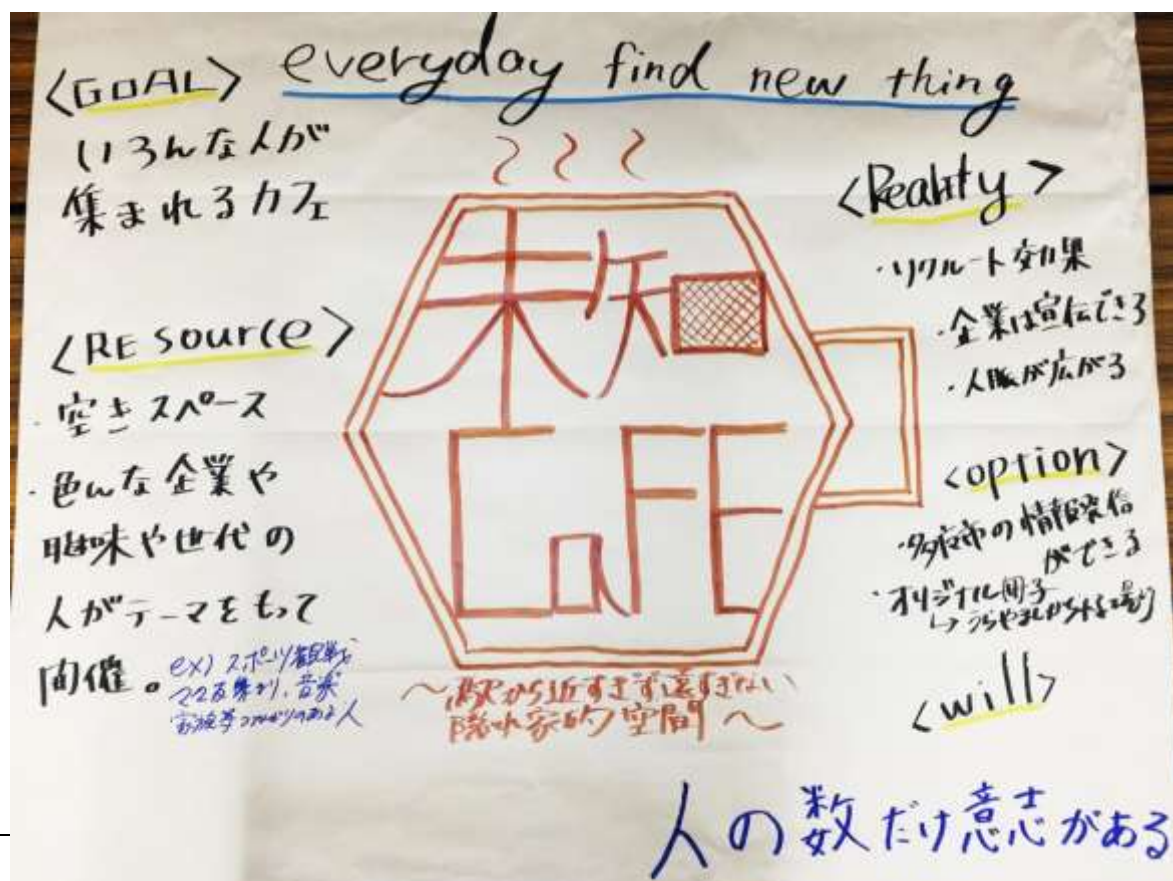 everyday find new thing
<GOAL>
いろんな人が
集まれるカフェ
<REsource>
・空きスペース
・色んな企業や
趣味や世代の
人がテーマをもって
開催。
ex) スポーツ観戦
ママ友集まり、音楽
未知
CaFE
〜駅から近すぎず遠すぎない
隠れ家的空間〜
<Reality>
・リクルート効果
・企業は宣伝できる
・人脈が広がる
<option>
の情報発信
ができる
・オリジナル
<will>
人の数だけ意志がある